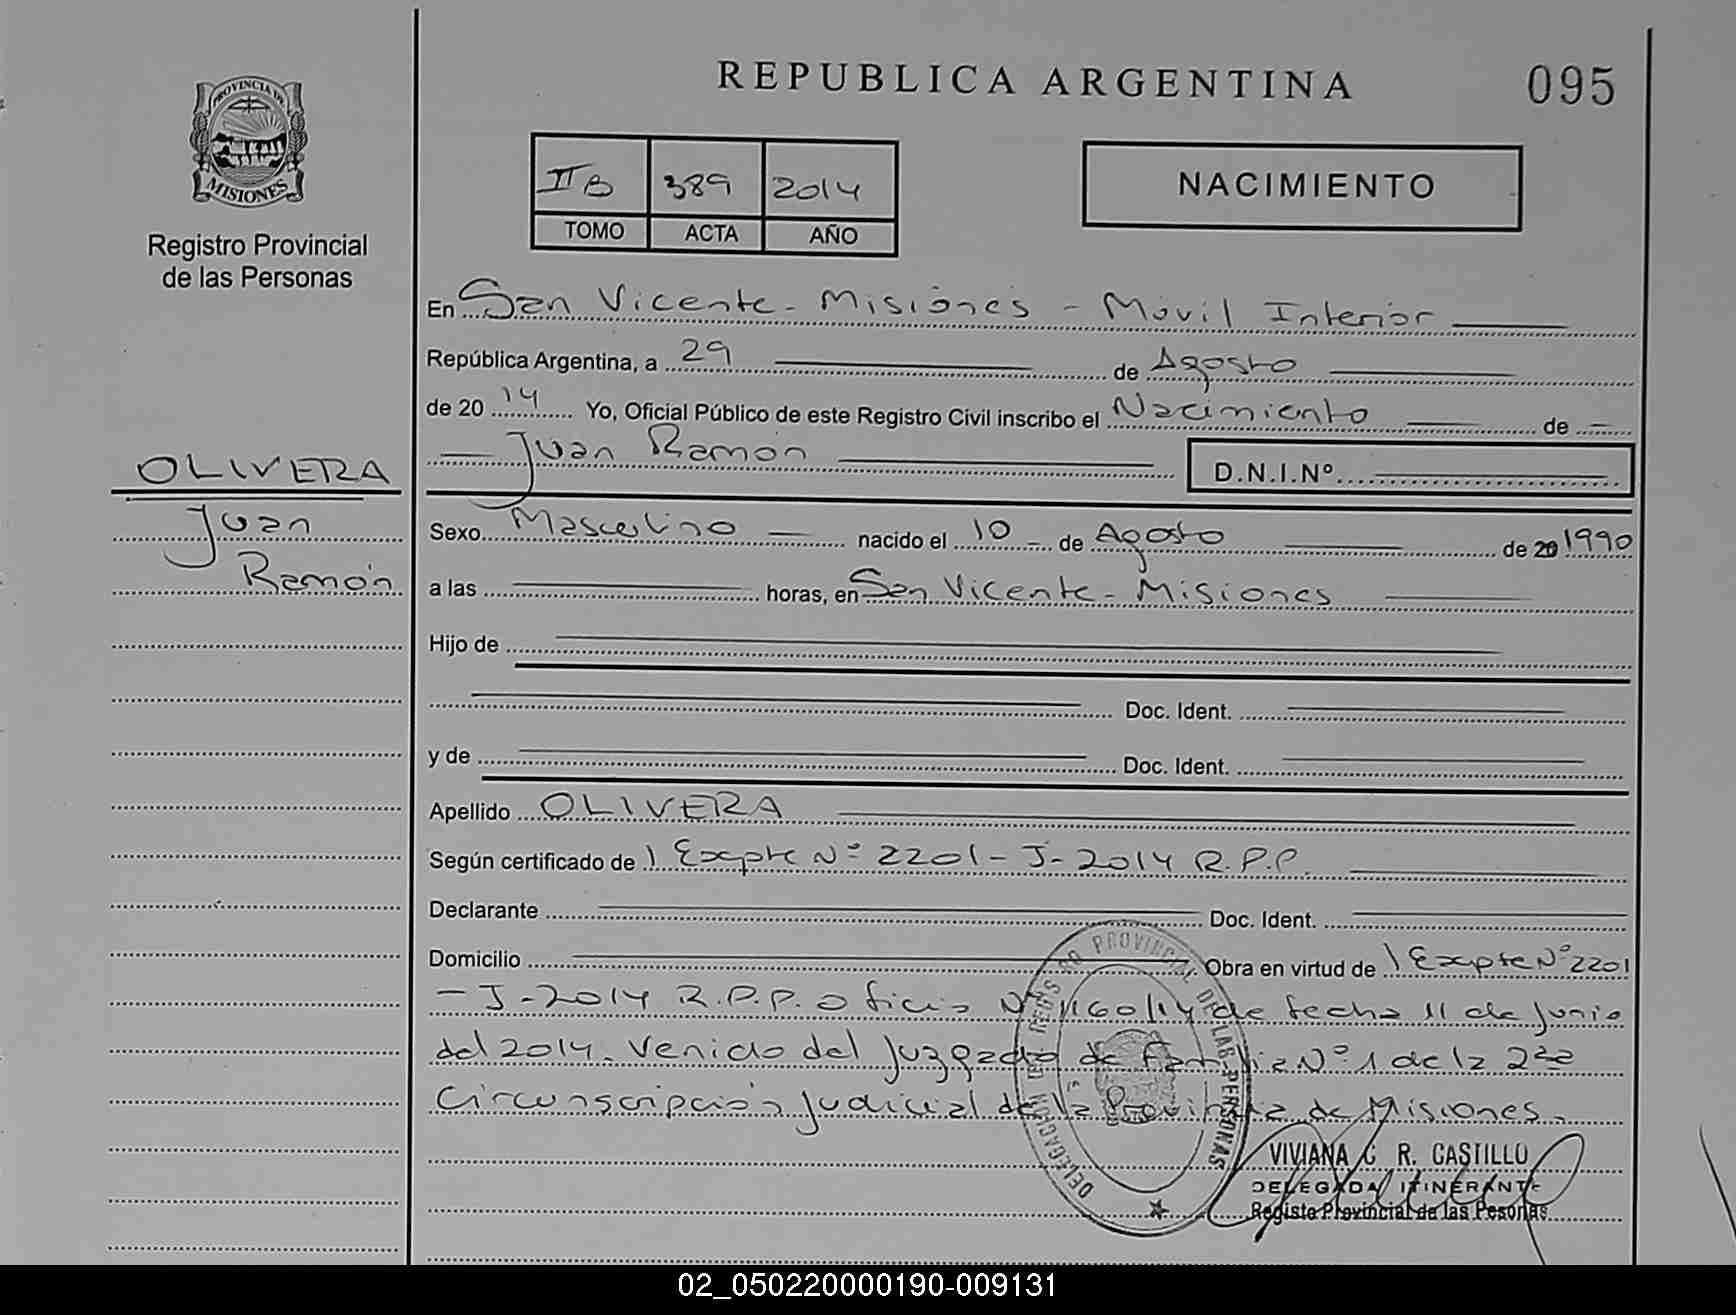 REPUBLICA ARGENTINA
095
PROVINCIA DE
MISIONES
Registro Provincial
de las Personas
II B 389 2014
TOMO ACTA AÑO
NACIMIENTO
En San Vicente - Misiones - Móvil Interior
República Argentina, a 29 de Agosto
de 20 14 Yo, Oficial Público de este Registro Civil inscribo el Nacimiento de
Juan Ramón D.N.I.Nº
OLIVERA
Juan
Ramón
Sexo Masculino nacido el 10 de Agosto de 20 1990
a las horas, en San Vicente - Misiones
Hijo de
Doc. Ident.
y de Doc. Ident.
Apellido OLIVERA
Según certificado de 1 Expte Nº 2201 - J - 2014 R.P.P.
Declarante Doc. Ident.
Domicilio Obra en virtud de 1 Expte Nº 2201
- J - 2014 R.P.P. Oficio Nº 1160/14 de fecha 11 de Junio
del 2014. Venido del Juzgado de Familia Nº 1 de la 2da
Circunscripción Judicial de la Provincia de Misiones.
REGISTRO PROVINCIAL DE LAS PERSONAS
DELEGACION
VIVIANA C R. CASTILLO
DELEGADA ITINERANTE
Registo Provincial de las Pesonas
02_050220000190-009131